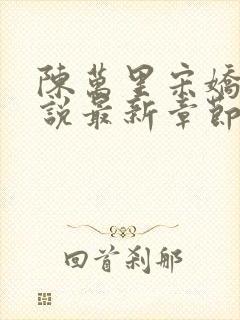 陳萬里宋嬌
說最新章節
回首剎那